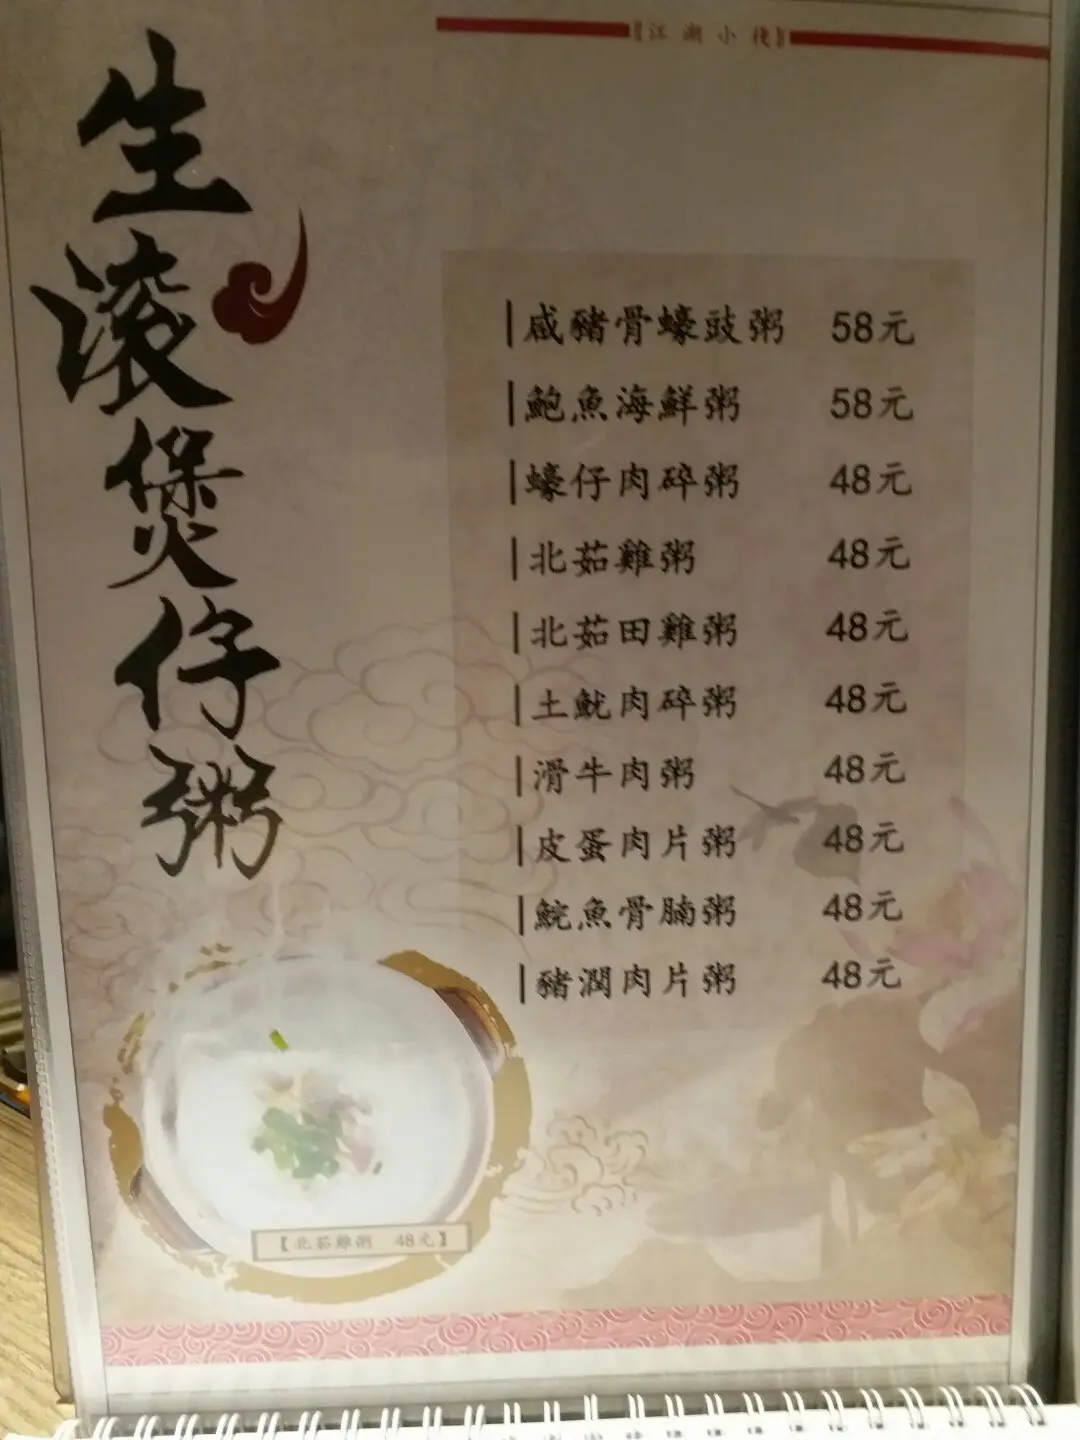 【江湖小棧】
生滚煲仔粥
咸豬骨蠔豉粥 58元
鮑魚海鮮粥 58元
蠔仔肉碎粥 48元
北茹雞粥 48元
北茹田雞粥 48元
土魷肉碎粥 48元
滑牛肉粥 48元
皮蛋肉片粥 48元
鯇魚骨腩粥 48元
豬潤肉片粥 48元
【北茹雞粥 48元】